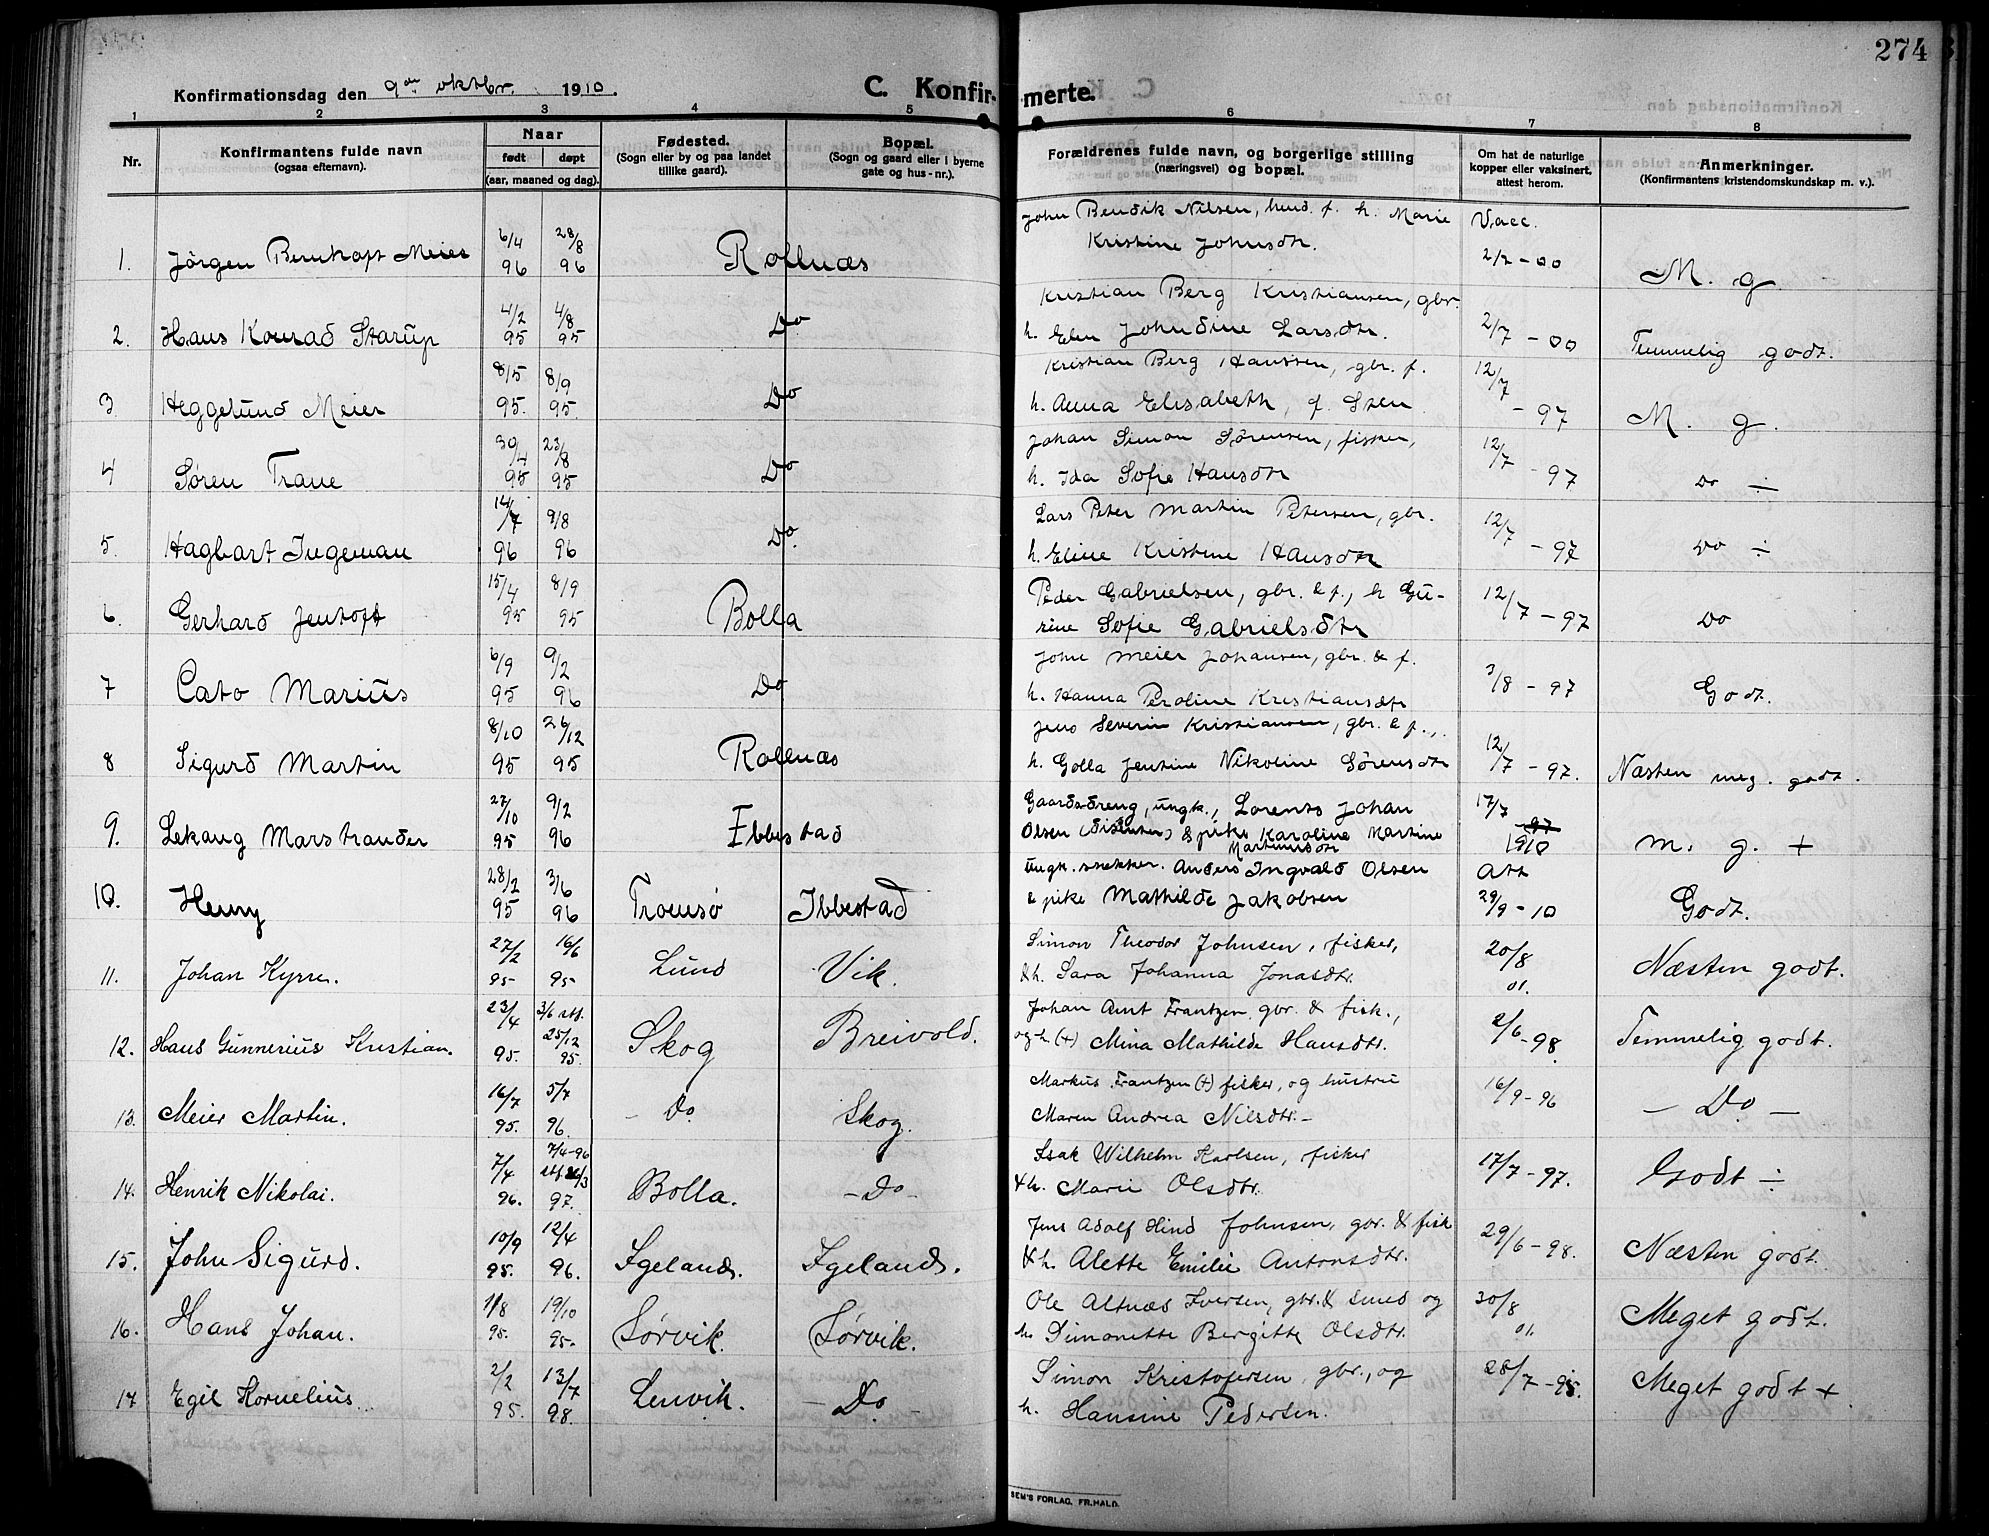 274
Konfirmationsdag den 9de oktbr. 1910.
C. Konfirmerte.
1 2 3 4 5 6 7 8
Nr.
Konfirmantens fulde navn
(ogsaa efternavn).
Naar
født døpt
(aar, maaned og dag).
Fødested.
(Sogn eller by og paa landet
tillike gaard).
Bopæl.
(Sogn og gaard eller i byerne
gate og hus-nr.).
Forældrenes fulde navn, og borgerlige stilling
(næringsvei) og bopæl.
Om hat de naturlige
kopper eller vaksinert,
attest herom.
Anmerkninger.
(Konfirmantens kristendomskundskap m. v.).
John Bendik Nilsen, husd. f. h. Marie Vacc.
1. Jörgen Bernhoft Meier 6/4 96 28/8 96 Rollnæs Kristine Johnsdtr. 2/2-00 M. g
Kristian Berg Kristiansen, gbr.
2. Hans Konrad Starup 4/2 95 4/8 95 Do h. Elen Johndine Larsdtr. 2/7-00 Temmelig godt.
Kristian Berg Hanssen, gbr. f.
3 Heggelund Meier 8/5 95. 8/9 95. Do h. Anna Elisabeth, f. Sten 12/7-97 M. g.
Johan Simon Sørensen, fisker,
4 Søren Trane 30/4 95 23/8 95 Do h. Ida Sofie Hansdtr 12/7-97 Do ÷
Lars Peter Martin Petersen, gbr.
5. Hagbart Ingeman 14/7 96 9/8 96 Do. h. Eline Kristine Hansdtr 12/7-97 Do ÷
Peder Gabrielsen, gbr. & f., h Gu-
6. Gerhard Jentoft 15/4 95 8/9 95 Bolla rine Sofie Gabrielsdtr 12/7-97 Do
John Meier Johansen, gbr. & f.
7 Cato Marius 6/9 95 9/2 96 Do h. Hanna Peroline Kristiansdtr 3/8-97 Godt.
Jens Severin Kristiansen, gbr. & f.,
8 Sigurd Martin 8/10 95 26/12 95 Rollnæs h. Golla Jentine Nikoline Sørensdtr 12/7-97. Næsten meg. godt.
Gaardsdreng, ungk., Lorents Johan
9. Lekang Marstrander 27/10 95 9/2 96 Ibbestad Olsen (disenter) & pike Karoline Martine 17/7 97 1910 m. g. +
Martinusdtr
ungk. snekker. Anders Ingvald Olsen Att
10. Henry 28/2 95 3/6 96 Tromsø Ibbestad & pike Mathilde Jakobsen 29/9-10 Godt.
Simon Theodor Johnsen, fisker,
11. Johan Kyrre. 27/2 95- 16/6 95- Lund Vik. & h. Sara Johanna Jonasdtr. 20/8 01. Næsten godt.
Johan Arnt Frantzen, gbr. & fisk.,
12. Hans Gunnerius Kristian. 23/4 95. 3/6 stf. 25/12 95. Skog Breivold. og h. (+) Mina Mathilde Hansdtr. 2/6-98 Temmelig godt.
Markus Frantzen (+) fisker, og hustru
13. Meier Martin. 16/7 95. 5/7 96. - Do. Skog. Maren Andrea Nilsdtr.- 16/9-96 - Do -
Isak Wilhelm Karlsen, fisker
14. Henrik Nikolai. 7/4 96. 7/4-96 stf. /3 97. Bolla. - Do - & h. Marie Olsdtr. 17/7-97. Godt ÷
Jens Adolf Hind Johnsen, gbr. & fisk
15. John Sigurd. 10/9 95. 12/4 96. Igeland. Igeland. & h. Alette Emilie Antonsdtr. 29/6-98. Næsten godt.
Ole Altnæs Iversen, gbr. & smed og
16. Hans Johan. 1/8 95. 19/10 95- Sørvik. Sørvik. h. Simonette Bergitte Olsdtr. 30/8 01. Meget godt.
Simon Kristofersen, gbr., og
17 Egil Kornelius. 2/2 95. 13/7 98. Lenvik. - Do - h. Hansine Pedersen. 28/7-98. Meget godt +
SEM'S FORLAG, FR.HALD.